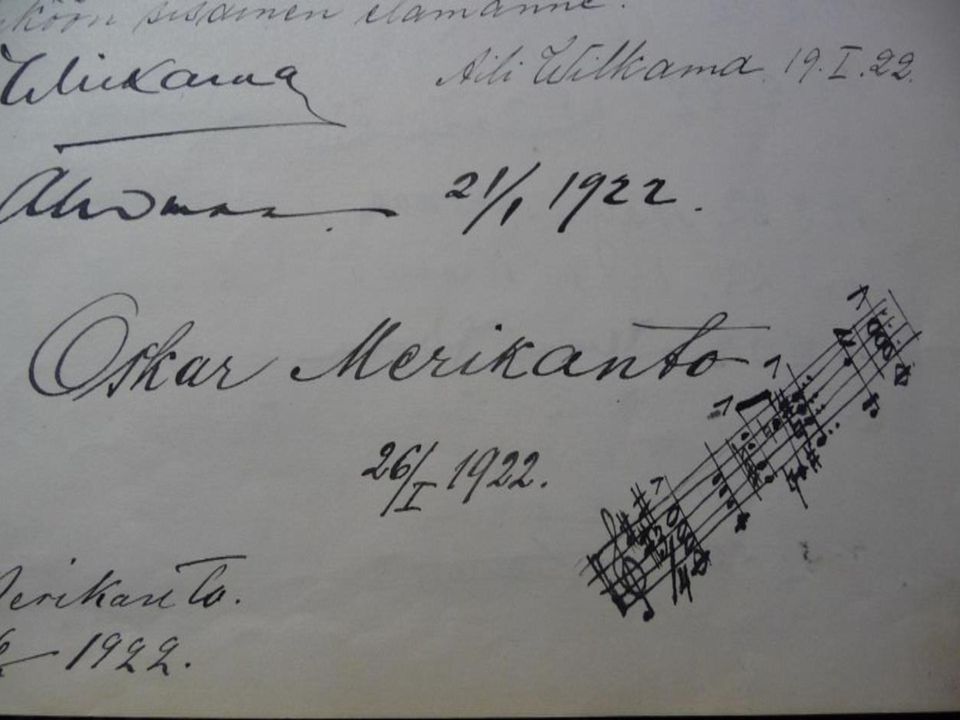 sisäinen elämänne.
Aili Wilkama 19.I.22.
21/1 1922.
Oskar Merikanto
26/I 1922.
Merikanto.
1922.